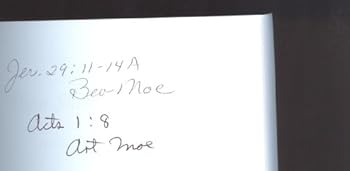 Jer. 29:11-14A
Bev Moe
Acts 1:8
Art Moe